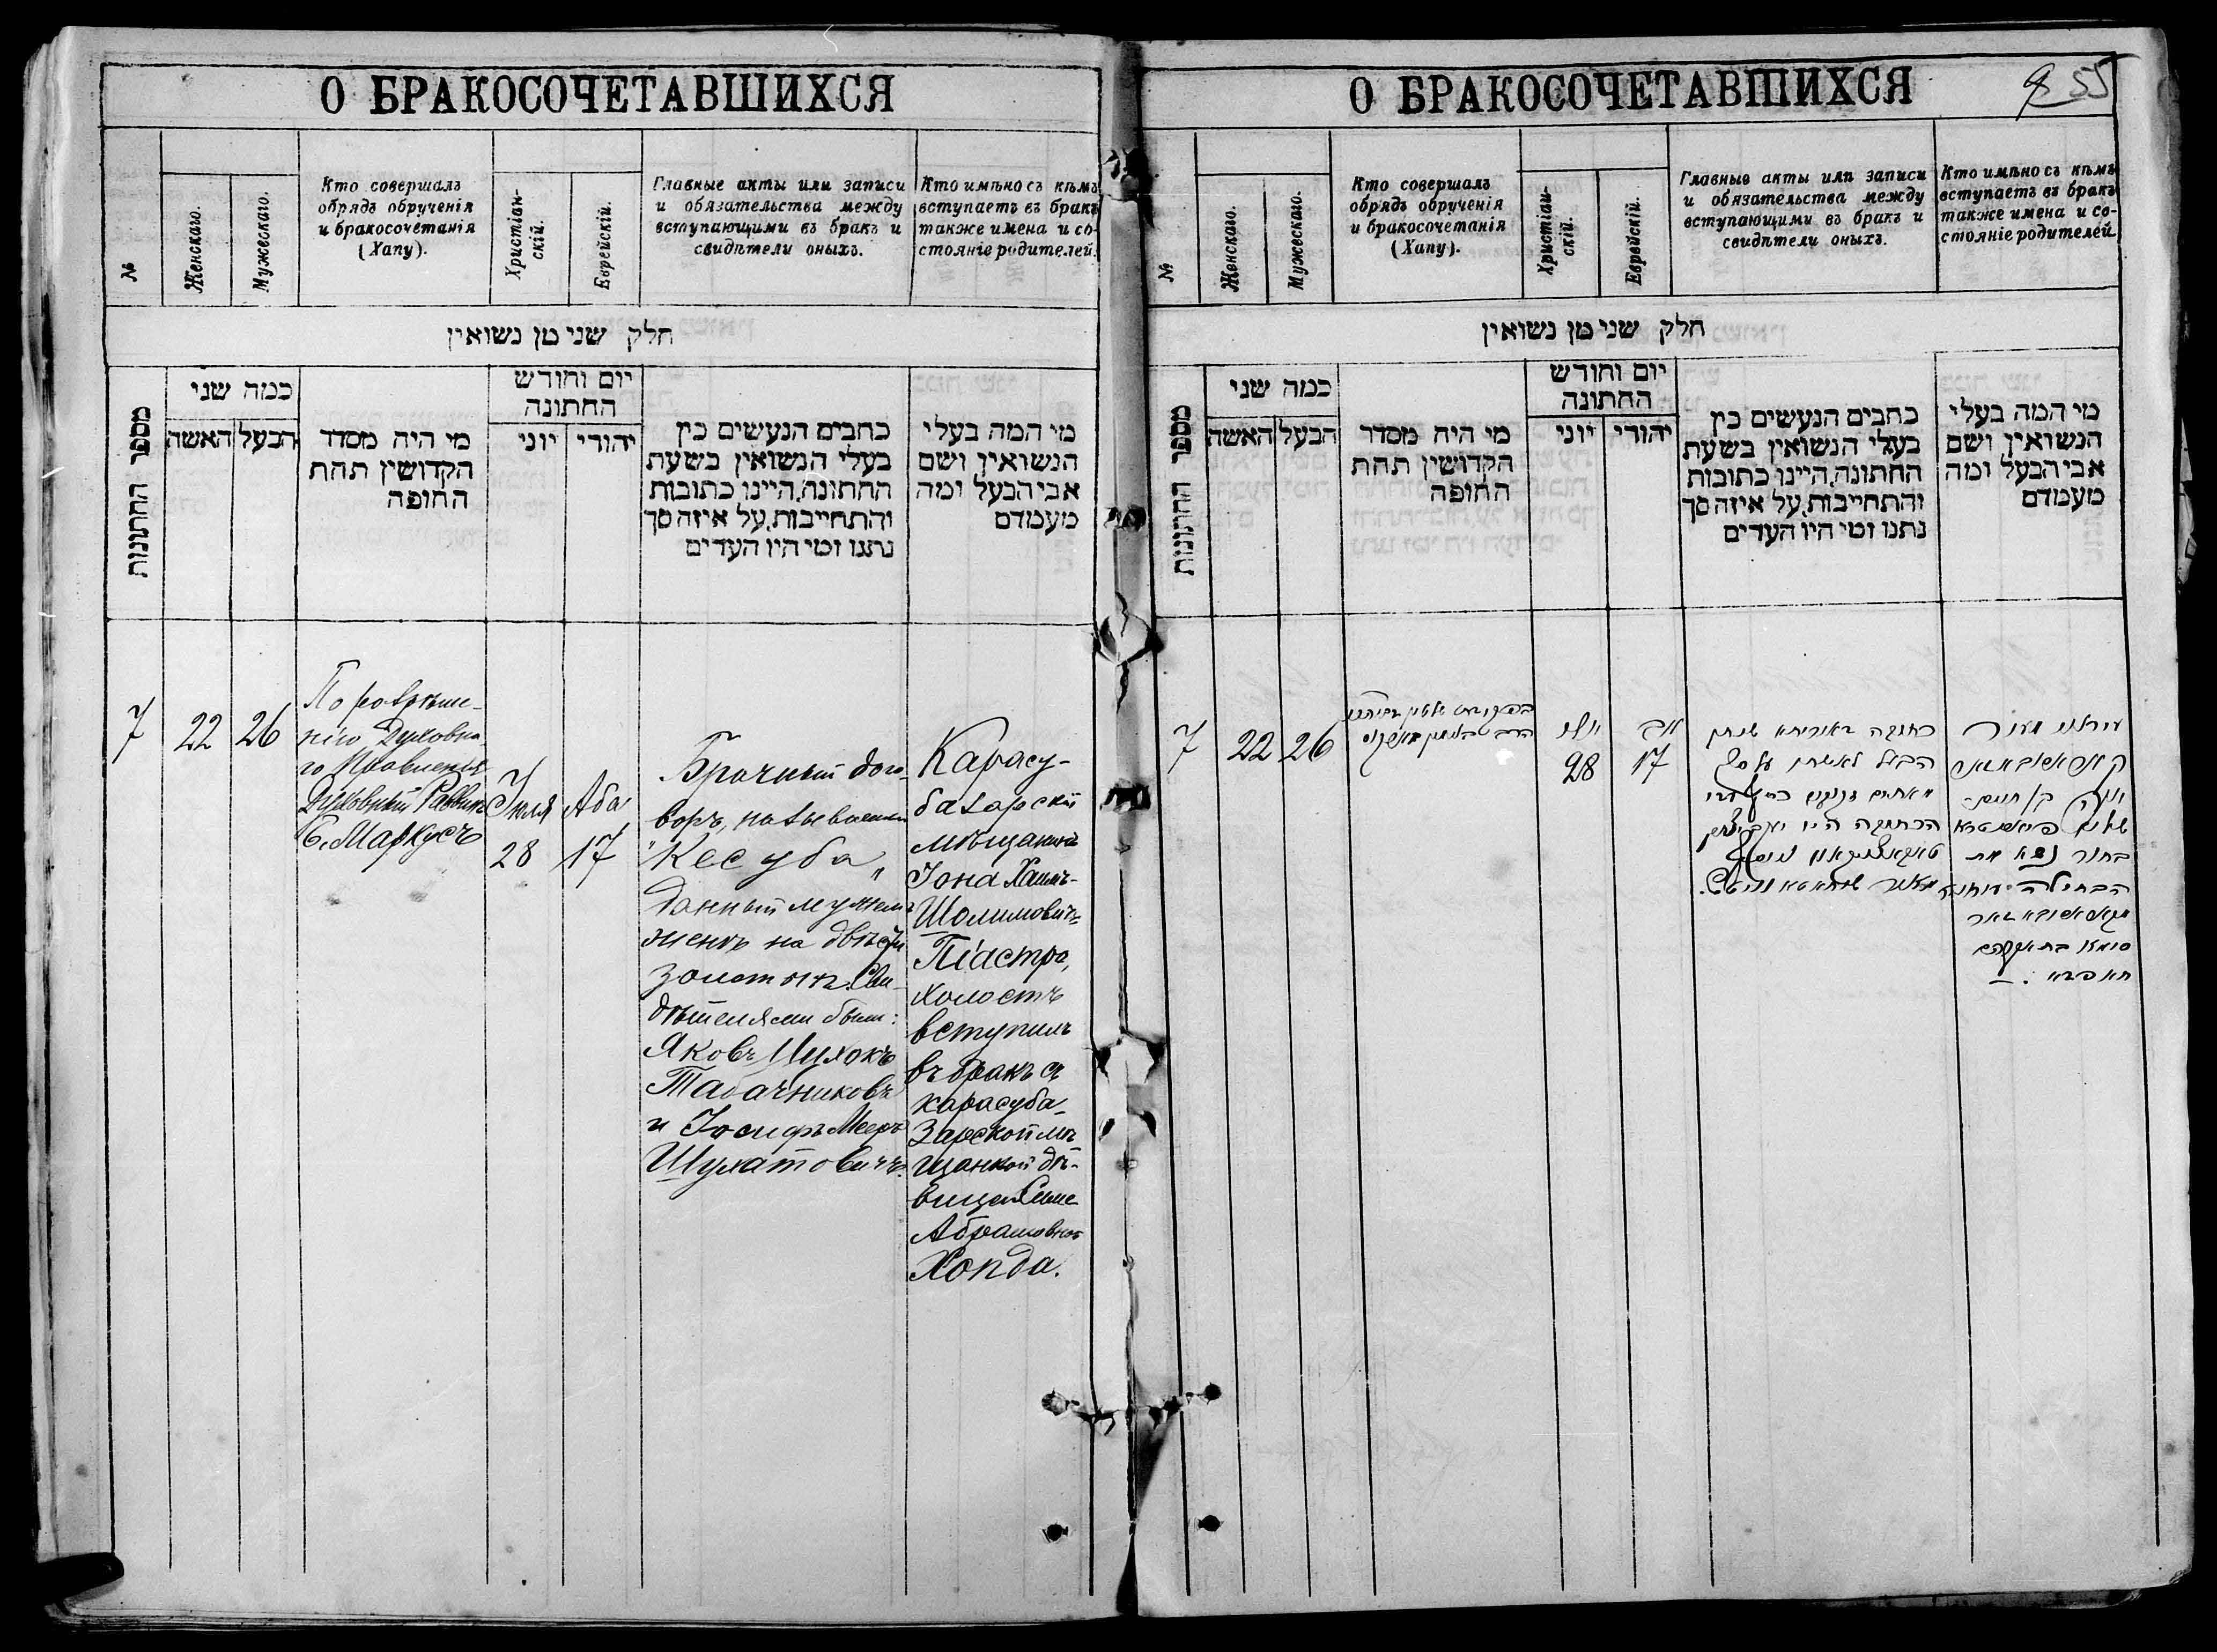 О БРАКОСОЧЕТАВШИХСЯ
№
Женскаго.
Мужескаго.
Кто совершалъ
обрядъ обрученія
и бракосочетанія
(Хапу).
Христіан-
скій.
Еврейскій.
Главные акты или записи
и обязательства между
вступающими въ бракъ и
свидѣтели оныхъ.
Кто имѣно съ кѣмъ
вступаетъ въ бракъ
также имена и со-
стояніе родителей.
חלק שני מן נשואין
מספר החתונות
כמה שני
האשה
הבעל
מי היה מסדר
הקדושין תחת
החופה
יום וחודש
החתונה
יוני
יהודי
כתבים הנעשים בין
בעלי הנשואין בשעת
החתונה, היינו כתובות
והתחייבות, על איזה סך
נתנו ומי היו העדים
מי המה בעלי
הנשואין ושם
אבי הבעל ומה
מעמדם
7
22
26
По разрѣше-
нію Духовна-
го Правленія
Духовный Раввинъ
Б. Маркусъ
Іюля
28
Аба
17
Брачный дого-
воръ, называемый
"Кесуба"
данный мужемъ
женѣ на двѣсти
золотыхъ. Сви-
дѣтелями были:
Яковъ Цухокъ
Табачниковъ
и Іосифъ Мееръ
Шулатовичъ.
Карасу-
базарскій
мѣщанинъ
Іона Хаимъ-
Шоломовичъ
Піастро,
холостъ
вступилъ
въ бракъ съ
карасуба-
зарской мѣ-
щанкой дѣ-
вицей Симе
Абрамовной
Хонда.
О БРАКОСОЧЕТАВШИХСЯ
55
№
Женскаго.
Мужескаго.
Кто совершалъ
обрядъ обрученія
и бракосочетанія
(Хапу).
Христіан-
скій.
Еврейскій.
Главные акты или записи
и обязательства между
вступающими въ бракъ и
свидѣтели оныхъ.
Кто имѣно съ кѣмъ
вступаетъ въ бракъ
также имена и со-
стояніе родителей.
חלק שני מן נשואין
מספר החתונות
כמה שני
האשה
הבעל
מי היה מסדר
הקדושין תחת
החופה
יום וחודש
החתונה
יוני
יהודי
כתבים הנעשים בין
בעלי הנשואין בשעת
החתונה, היינו כתובות
והתחייבות, על איזה סך
נתנו ומי היו העדים
מי המה בעלי
הנשואין ושם
אבי הבעל ומה
מעמדם
7
22
26
יולי
28
אב
17
כתובה דאורייתא שנתן
הבעל לאשתו על סך
מאתים
הכתובה היו
עיראני מעיר
יונה בן חיים
שלום פיאסטרא
בחור נשא את
הבתולה
סימא בת אברהם
חאנדא